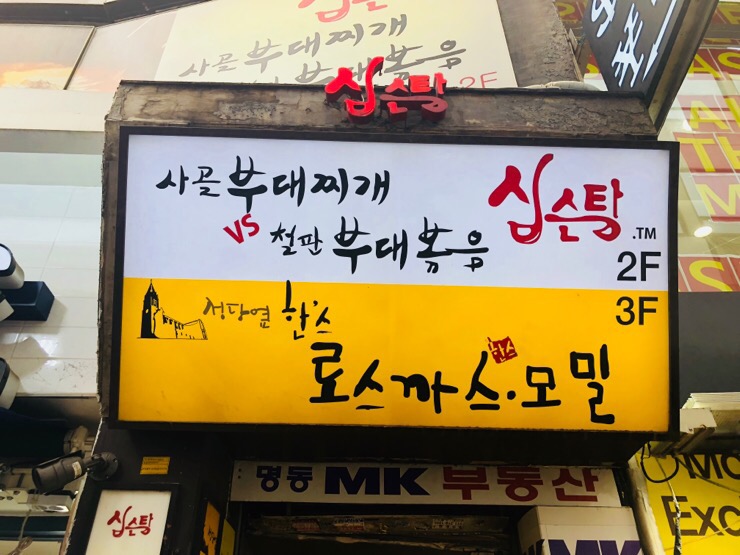 십슨탕
사골 부대찌개
부대볶음
2F
십슨탕
사골 부대찌개 십슨탕.TM
vs 철판 부대볶음
2F
3F
성당옆 한's
로스까스·모밀
한스
명동 MK 부동산
십슨탕
MK
Exc